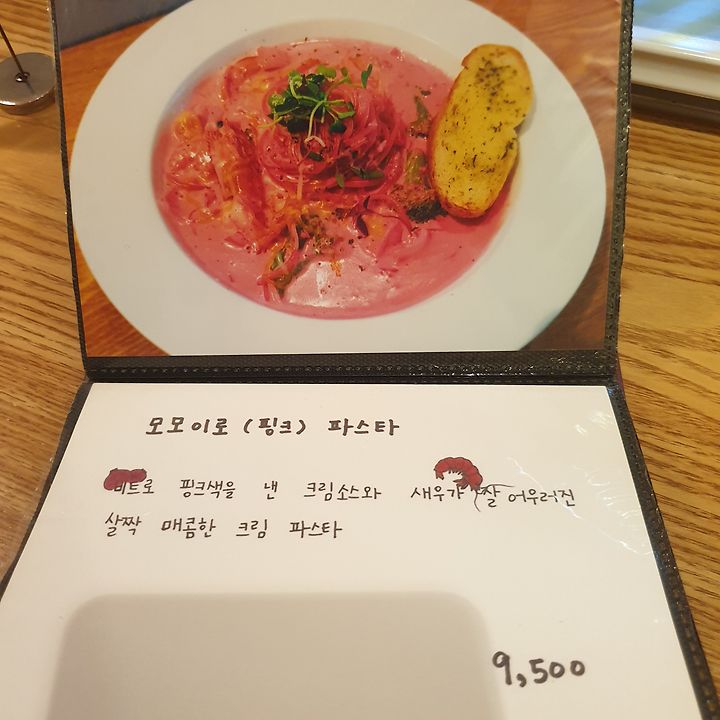 모모이로 (핑크) 파스타
비트로 핑크색을 낸 크림소스와 새우가 잘 어우러진
살짝 매콤한 크림 파스타
9,500